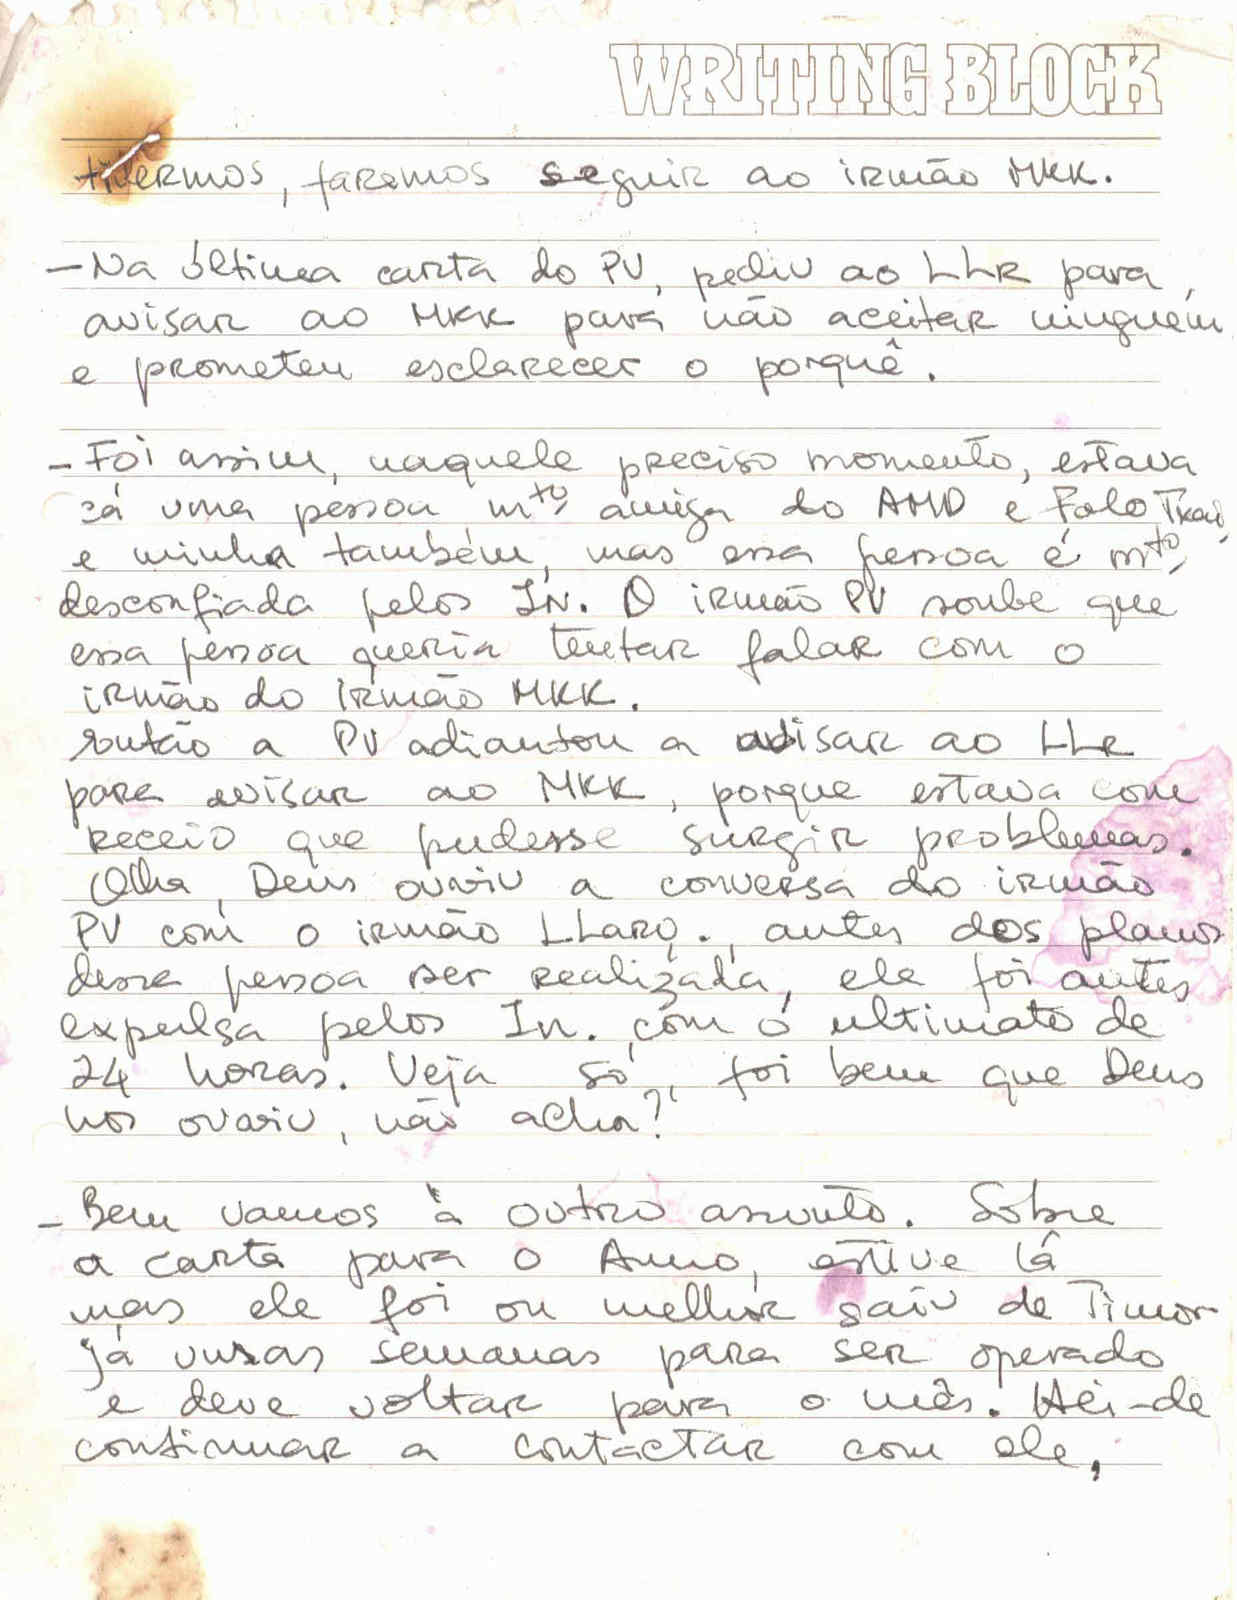 WRITING BLOCK
tivermos, faremos seguir ao irmão MKK.
- Na última carta do PV, pediu ao LLR para,
avisar ao MKK para não aceitar ninguém
e prometeu esclarecer o porquê.
- Foi assim, naquele preciso momento, estava
cá uma pessoa mto amiga do AMD e Falo Txai,
e minha também, mas essa pessoa é mto,
desconfiada pelos IN. O irmão PV soube que
essa pessoa queria tentar falar com o
irmão do irmão MKK.
Então a PV adiantou a avisar ao LLR
para avisar ao MKK, porque estava com
receio que pudesse surgir problemas.
Olha, Deus ouviu a conversa do irmão
PV com o irmão L.Larq., antes dos planos
dessa pessoa ser realizada, ele foi antes
expulsa pelos In. com o ultimato de
24 horas. Veja só, foi bem que Deus
nos ouviu, não acha?
- Bem vamos à outro assunto. Sobre
a carta para o Amo, estive lá
mas ele foi ou melhor saiu de Timor
já umas semanas para ser operado
e deve voltar para o mês. Hei-de
continuar a contactar com ele,